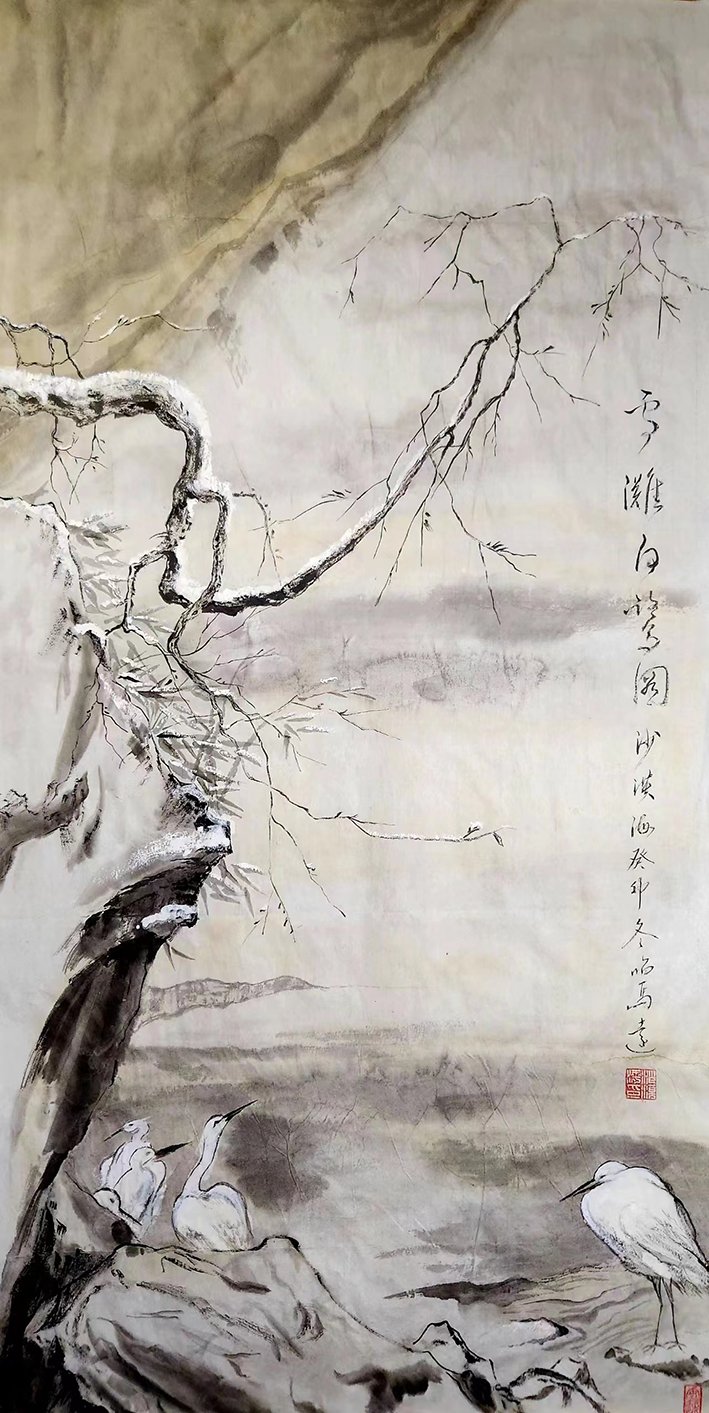 雪灘白鷺圖 沙漠海癸卯冬臨馬遠